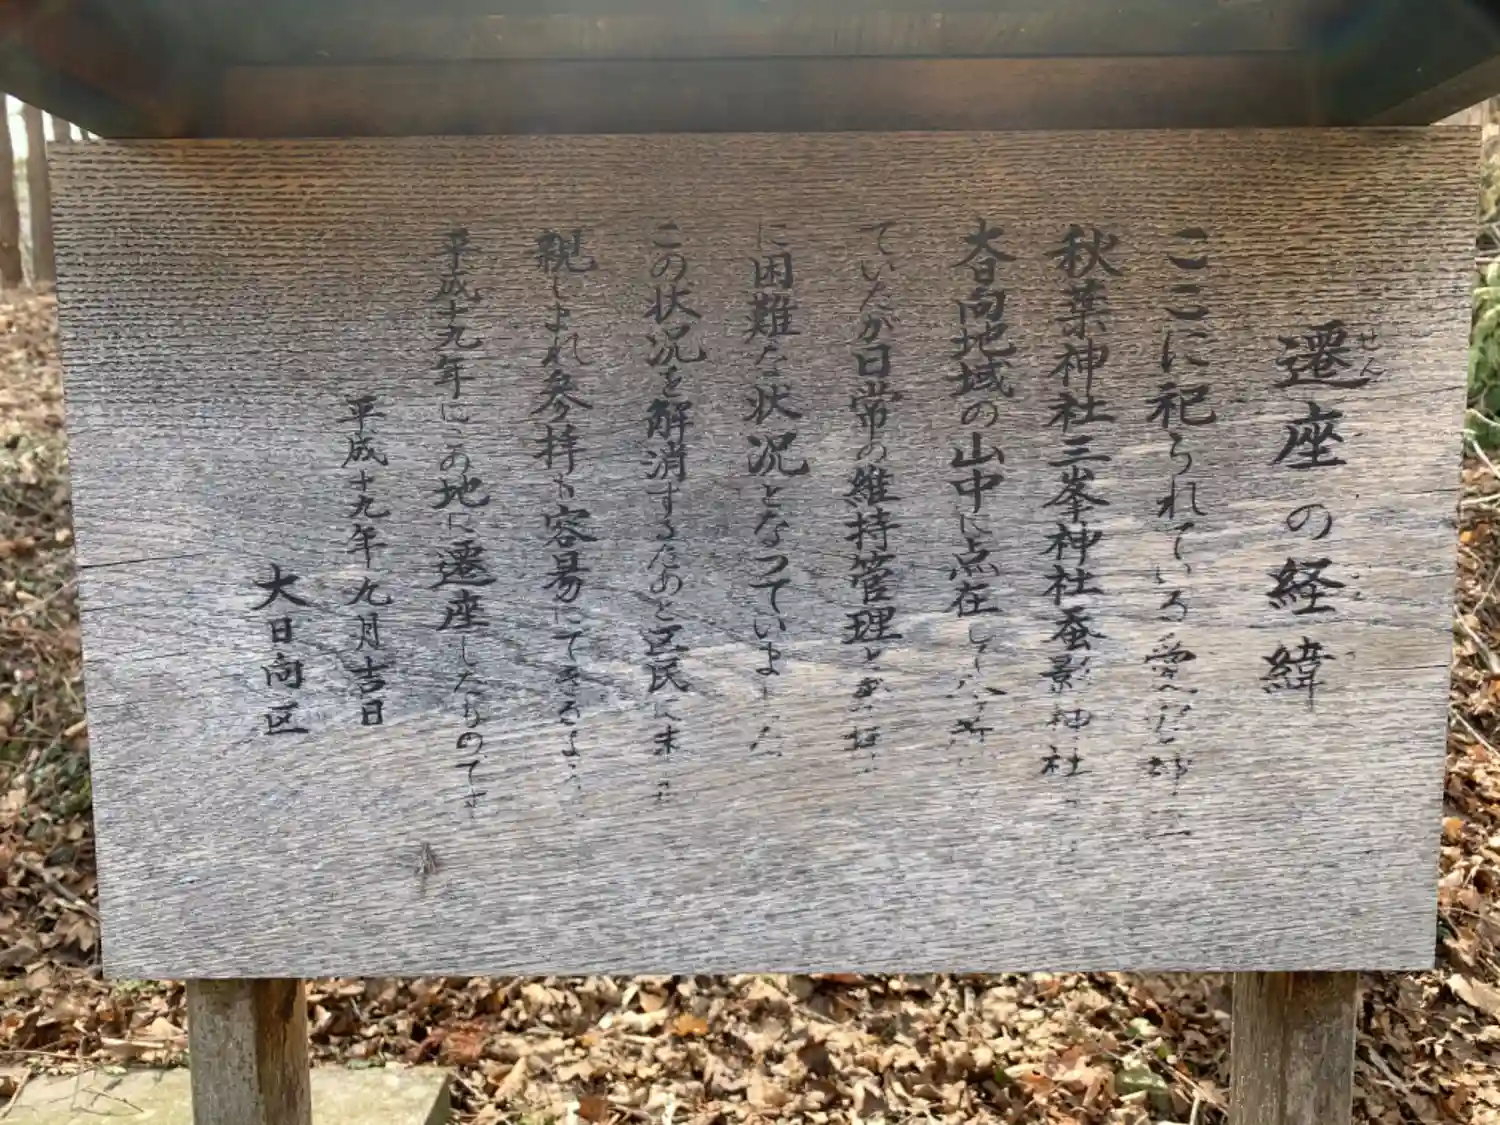 遷座の経緯
せん
ここに祀られている愛宕神社
秋葉神社三峯神社蚕影神社
大日向地域の山中に点在し
ていたが日常の維持管理
に困難な状況となっていました
この状況を解消するためと区民に
親しまれ参拝も容易にできるよう
平成十九年にこの地に遷座したものです
平成十九年九月吉日
大日向区